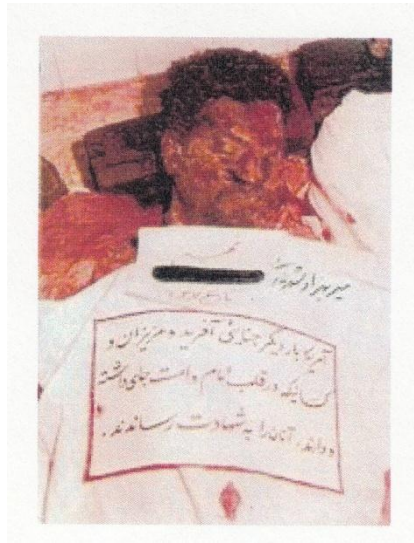 آمریکا بار دیگر جنایتی آفرید و عزیزان و
کسانیکه در قلب امام و امت جای داشته
و دارند، آنان را به شهادت رساندند.